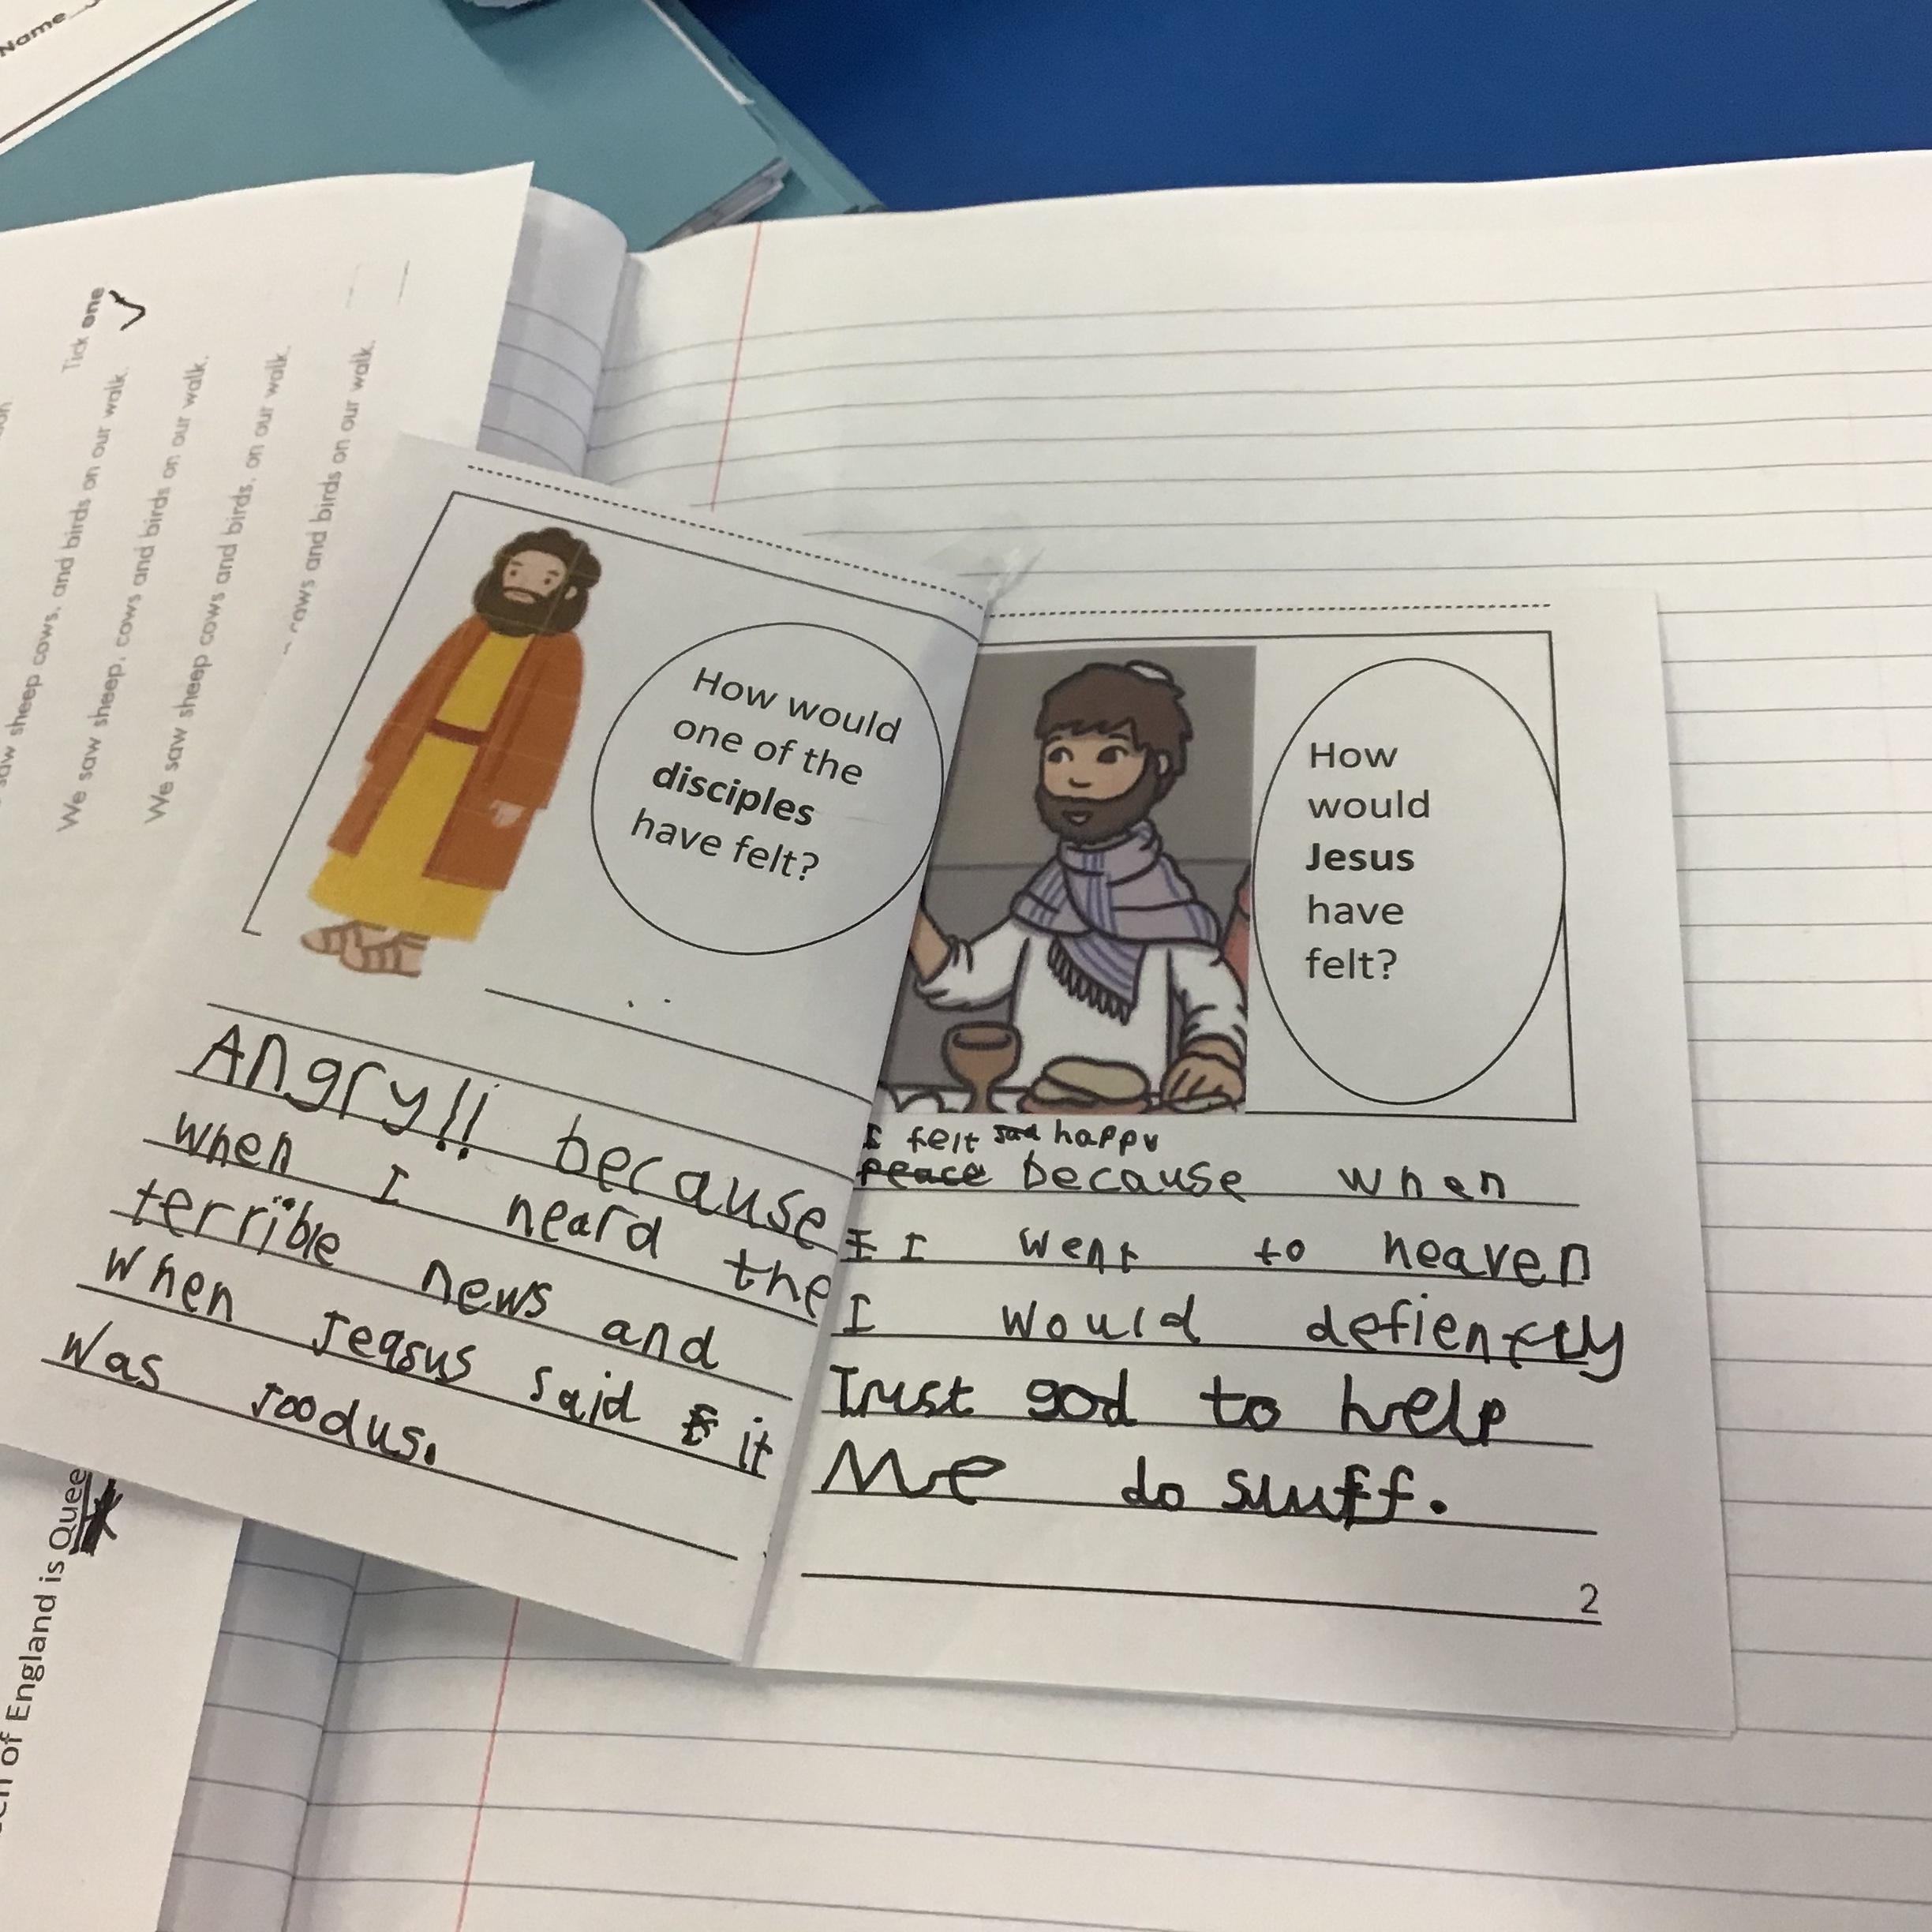 Name
Tick one
saw sheep cows, and birds on our walk.
We saw sheep, cows and birds on our walk.
We saw sheep cows and birds, on our walk.
cows and birds on our walk.
How would
one of the
disciples
have felt?
Angry!! because
when I heard the
terrible news and
when Jeasus said it
was Joodus.
How
would
Jesus
have
felt?
I felt sad happy
peace because when
I I went to heaven
I would defiently
Trust god to help
Me do stuff.
2
of England is Quee